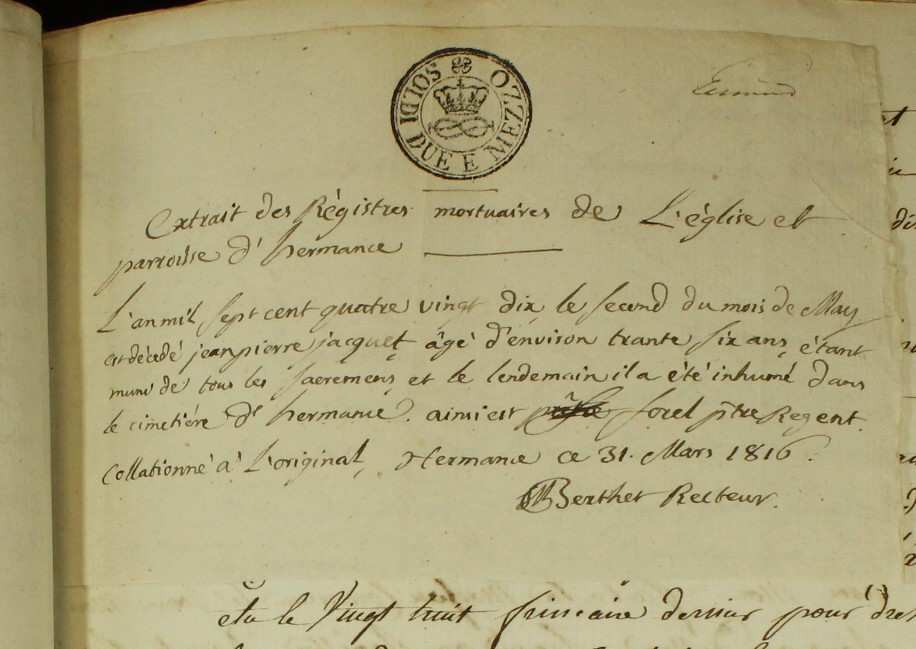 SOLDI DUE E MEZZO
Extrait des Régistres mortuaires de L'église et
parroisse d'hermance
L'an mil sept cent quatre vingt dix le second du mois de May
est décédé jean pierre jacquet âgé d'environ trante six ans, étant
muni de tous les sacremens et le lendemain il a été inhumé dans
le cimetiére d'hermance. ainsi est forel ptre Regent.
Collationné à L'original, Hermance ce 31. Mars 1816.
Berthet Recteur.
vingt huit dernier pour